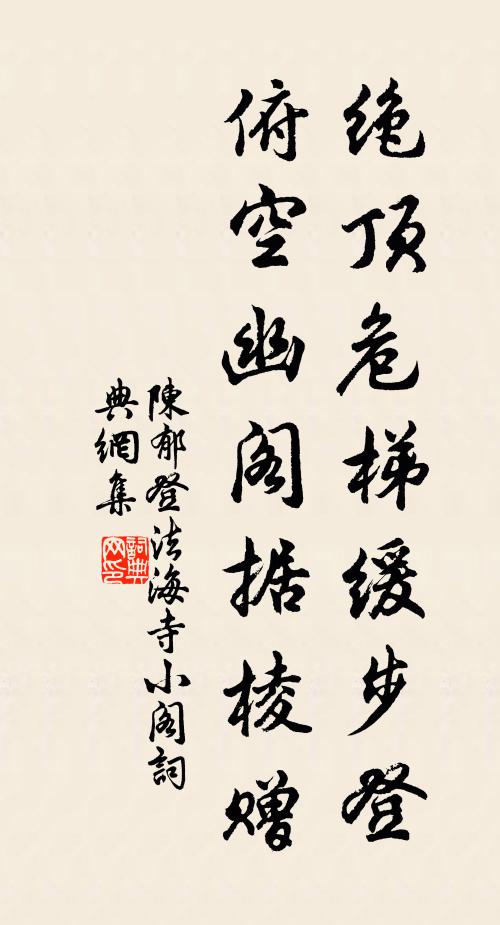 绝顶危梯缓步登
俯空幽阁据棱赠
陳郁登法海寺小阁詞
典網集
詞典
网印